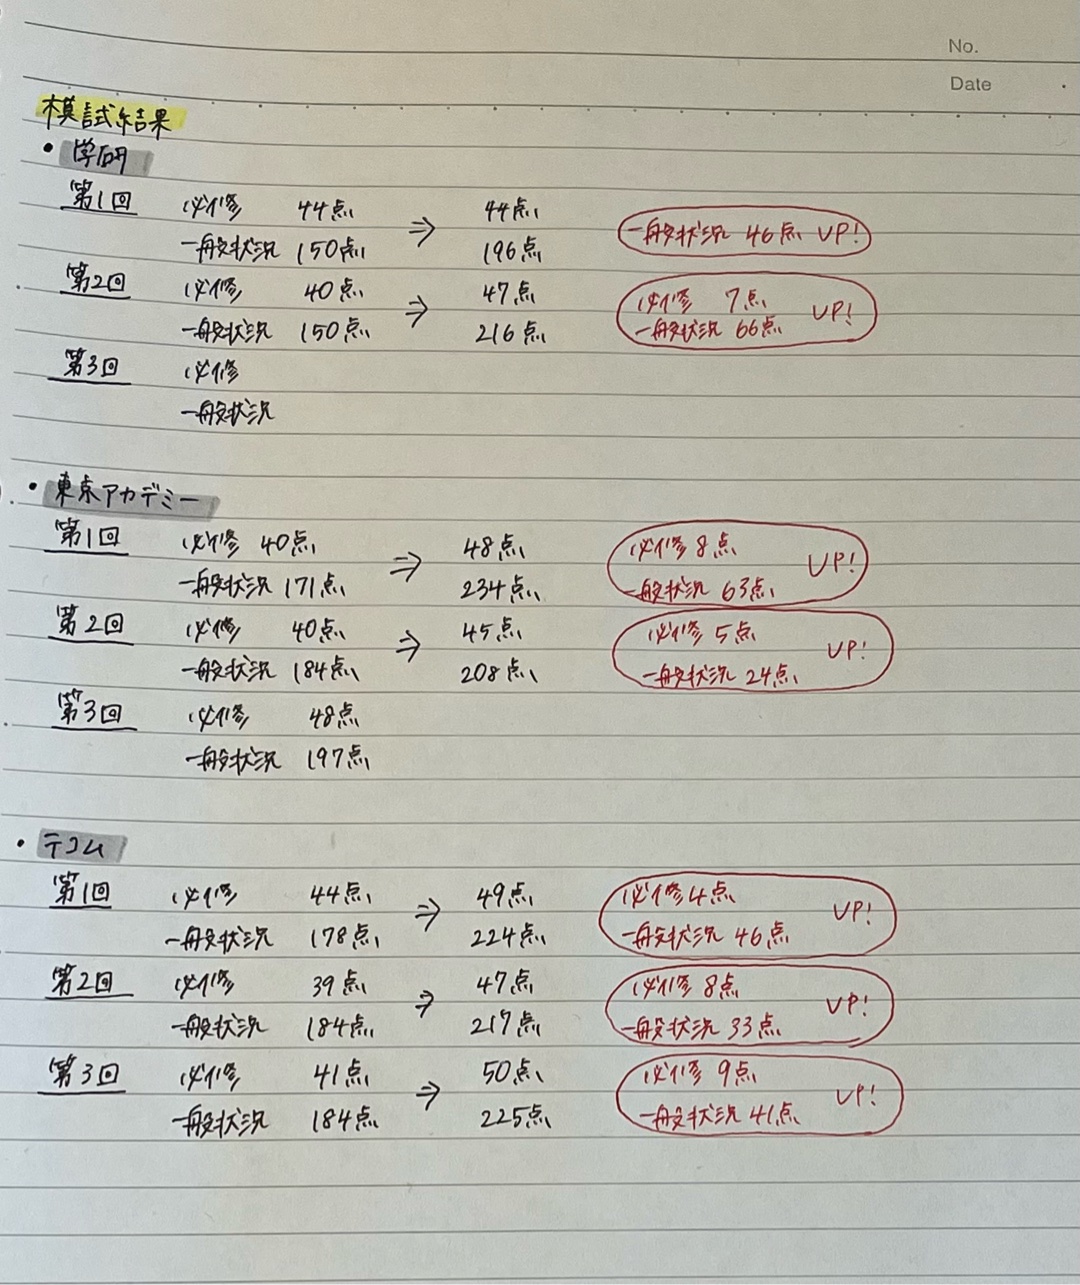 No.
Date
模試結果
・学研
第1回 必修 44点 ⇒ 44点
一般状況 150点 196点 一般状況 46点 UP!
第2回 必修 40点 ⇒ 47点 必修 7点 UP!
一般状況 150点 216点 一般状況 66点
第3回 必修
一般状況
・東京アカデミー
第1回 必修 40点 ⇒ 48点 必修 8点 UP!
一般状況 171点 234点 一般状況 63点
第2回 必修 40点 ⇒ 45点 必修 5点 UP!
一般状況 184点 208点 一般状況 24点
第3回 必修 48点
一般状況 197点
・テコム
第1回 必修 44点 ⇒ 49点 必修 4点 UP!
一般状況 178点 224点 一般状況 46点
第2回 必修 39点 ⇒ 47点 必修 8点 UP!
一般状況 184点 217点 一般状況 33点
第3回 必修 41点 ⇒ 50点 必修 9点 UP!
一般状況 184点 225点 一般状況 41点